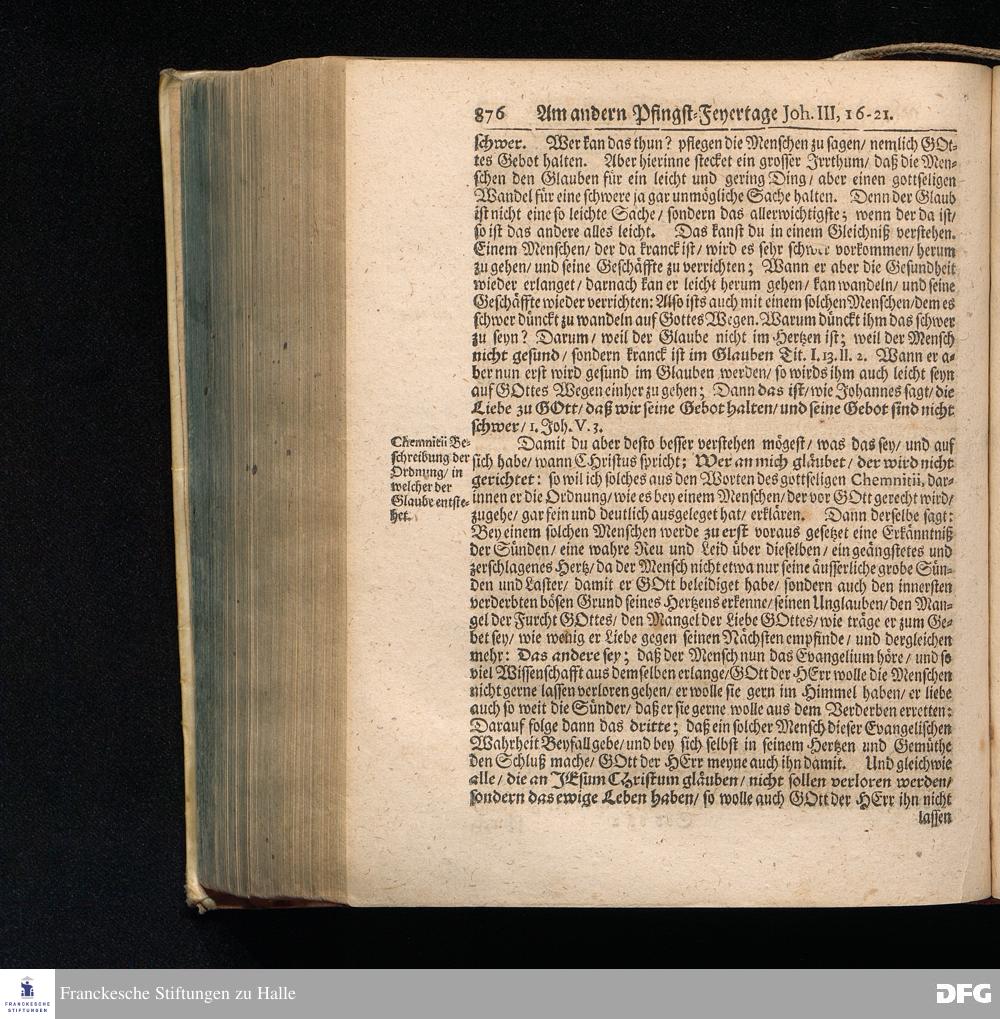 876 Am andern Pfingst-Feyertage Joh. III, 16-21.
schwer. Wer kan das thun? pflegen die Menschen zu sagen/ nemlich GOt-
tes Gebot halten. Aber hierinne stecket ein grosser Irrthum/ daß die Men-
schen den Glauben für ein leicht und gering Ding/ aber einen gottseligen
Wandel für eine schwere ja gar unmögliche Sache halten. Denn der Glaub
ist nicht eine so leichte Sache/ sondern das allerwichtigste; wenn der da ist/
so ist das andere alles leicht. Das kanst du in einem Gleichniß verstehen.
Einem Menschen/ der da kranck ist/ wird es sehr schwer vorkommen/ herum
zu gehen/ und seine Geschäffte zu verrichten; Wann er aber die Gesundheit
wieder erlanget/ darnach kan er leicht herum gehen/ kan wandeln/ und seine
Geschäffte wieder verrichten: Also ists auch mit einem solchen Menschen/ dem es
schwer dünckt zu wandeln auf Gottes Wegen. Warum dünckt ihm das schwer
zu seyn? Darum/ weil der Glaube nicht im Hertzen ist; weil der Mensch
nicht gesund/ sondern kranck ist im Glauben Tit. I. 13. II. 2. Wann er a-
ber nun erst wird gesund im Glauben werden/ so wirds ihm auch leicht seyn
auf GOttes Wegen einher zu gehen; Dann das ist/ wie Johannes sagt/ die
Liebe zu GOtt/ daß wir seine Gebot halten/ und seine Gebot sind nicht
schwer/ 1. Joh. V. 3.
Chemnitii Be-
schreibung der
Ordnung/ in
welcher der
Glaube entste-
het.
Damit du aber desto besser verstehen mögest/ was das sey/ und auf
sich habe/ wann CHristus spricht; Wer an mich gläubet/ der wird nicht
gerichtet: so wil ich solches aus den Worten des gottseligen Chemnitii, dar-
innen er die Ordnung/ wie es bey einem Menschen/ der vor GOtt gerecht wird/
zugehe/ gar fein und deutlich ausgeleget hat/ erklären. Dann derselbe sagt:
Bey einem solchen Menschen werde zu erst voraus gesetzet eine Erkänntniß
der Sünden/ eine wahre Reu und Leid über dieselben/ ein geängstetes und
zerschlagenes Hertz/ da der Mensch nicht etwa nur seine äusserliche grobe Sün-
den und Laster/ damit er GOtt beleidiget habe/ sondern auch den innersten
verderbten bösen Grund seines Hertzens erkenne/ seinen Unglauben/ den Man-
gel der Furcht GOttes/ den Mangel der Liebe GOttes/ wie träge er zum Ge-
bet sey/ wie wenig er Liebe gegen seinen Nächsten empfinde/ und dergleichen
mehr: Das andere sey; daß der Mensch nun das Evangelium höre/ und so
viel Wissenschafft aus demselben erlange/ GOtt der HErr wolle die Menschen
nicht gerne lassen verloren gehen/ er wolle sie gern im Himmel haben/ er liebe
auch so weit die Sünder/ daß er sie gerne wolle aus dem Verderben erretten:
Darauf folge dann das dritte; daß ein solcher Mensch dieser Evangelischen
Wahrheit Beyfall gebe/ und bey sich selbst in seinem Hertzen und Gemüthe
den Schluß mache/ GOtt der HErr meyne auch ihn damit. Und gleichwie
alle/ die an JEsum CHristum gläuben/ nicht sollen verloren werden/
sondern das ewige Leben haben/ so wolle auch GOtt der HErr ihn nicht
lassen
FRANCKESCHE
STIFTUNGEN
Franckesche Stiftungen zu Halle
DFG